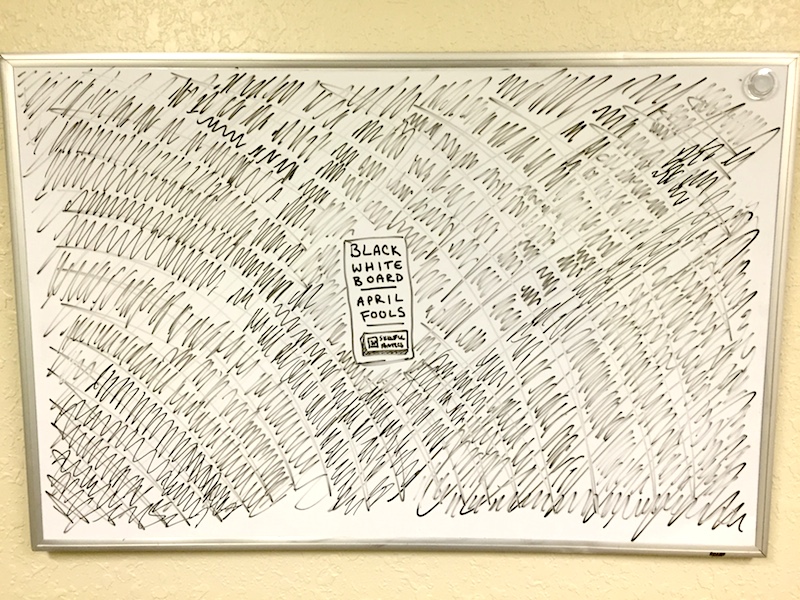 BLACK
WHITE
BOARD
APRIL
FOOLS